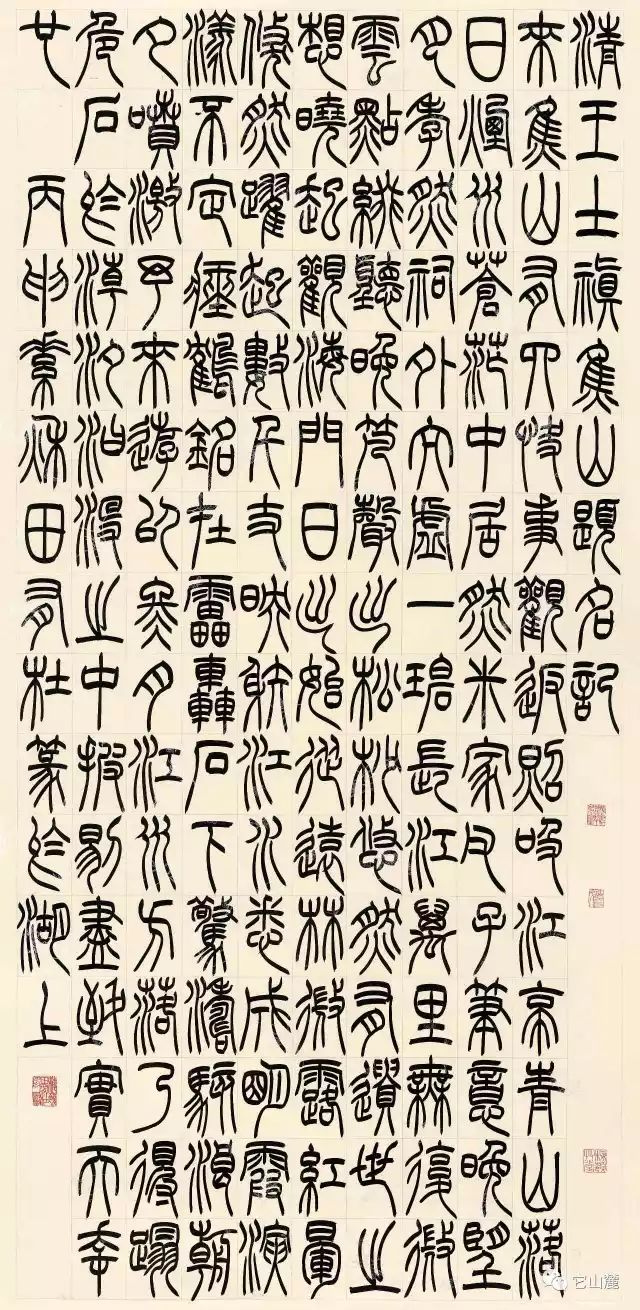 清王士禛焦山題名記
來焦山有四快事觀返照吸江亭青山落
日煙水蒼茫中居然米家父子筆意晚望
月孝然祠外太虛一碧長江萬里無復微
雲點綴聽晚梵聲出松杪悠然有遺世之
想曉起觀海門日出始從遠林微露紅暈
倏然躍起數千丈映射江水悉成明霞演
漾不定瘞鶴銘在雷轟石下驚濤駭浪朝
夕噴激予來遊以冬月江水方落乃得踞
危石於潮汐汩沒之中披剔盡致實天幸
也 丙申素秋田有杜篆於湖上
它山麓